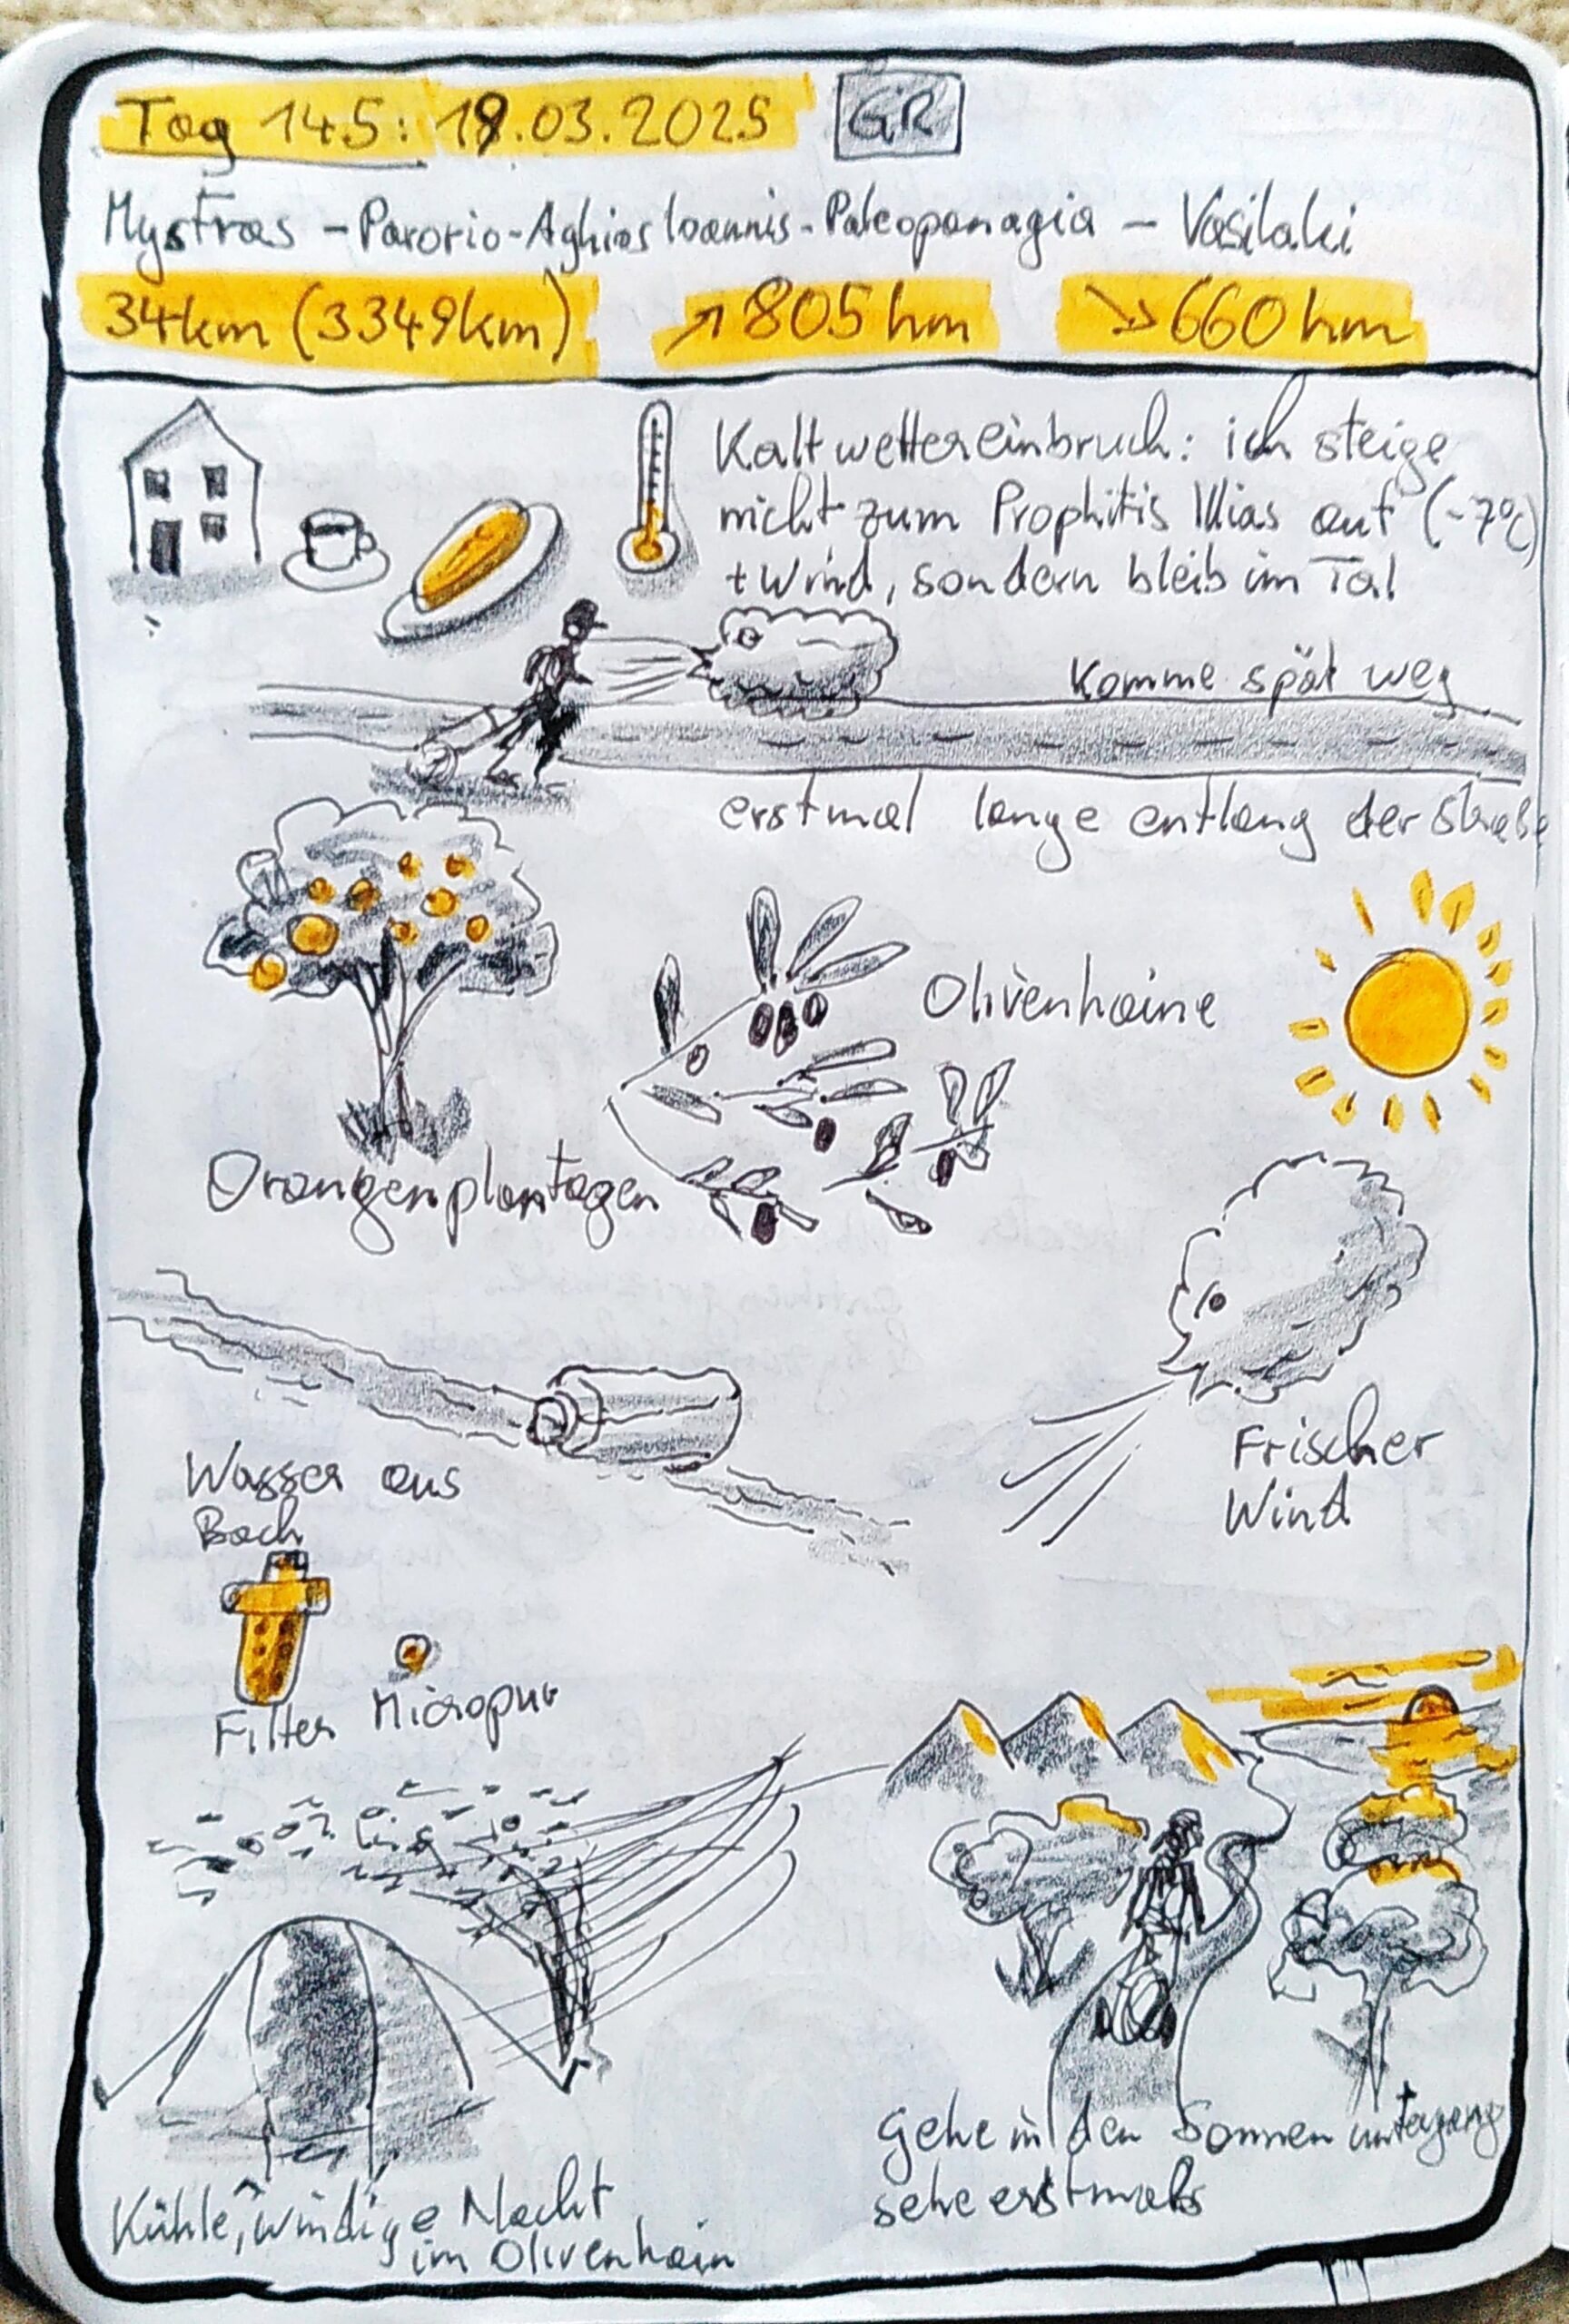 Tag 145: 19.03.2025 GR
Mystras - Parorio - Aghios Ioannis - Paleopanagia - Vasilaki
34km (3349km) ↗805hm ↘660hm
Kaltwettereinbruch: ich steige
nicht zum Prophitis Ilias auf (-7°C)
+ Wind, sondern bleib im Tal
Komme spät weg
erstmal lange entlang der Straße
Olivenhaine
Orangenplantagen
Frischer
Wind
Wasser aus
Bach
Filter Micropur
Gehe in den Sonnenuntergang
sehe erstmals
Kühle, windige Nacht
im Olivenhain